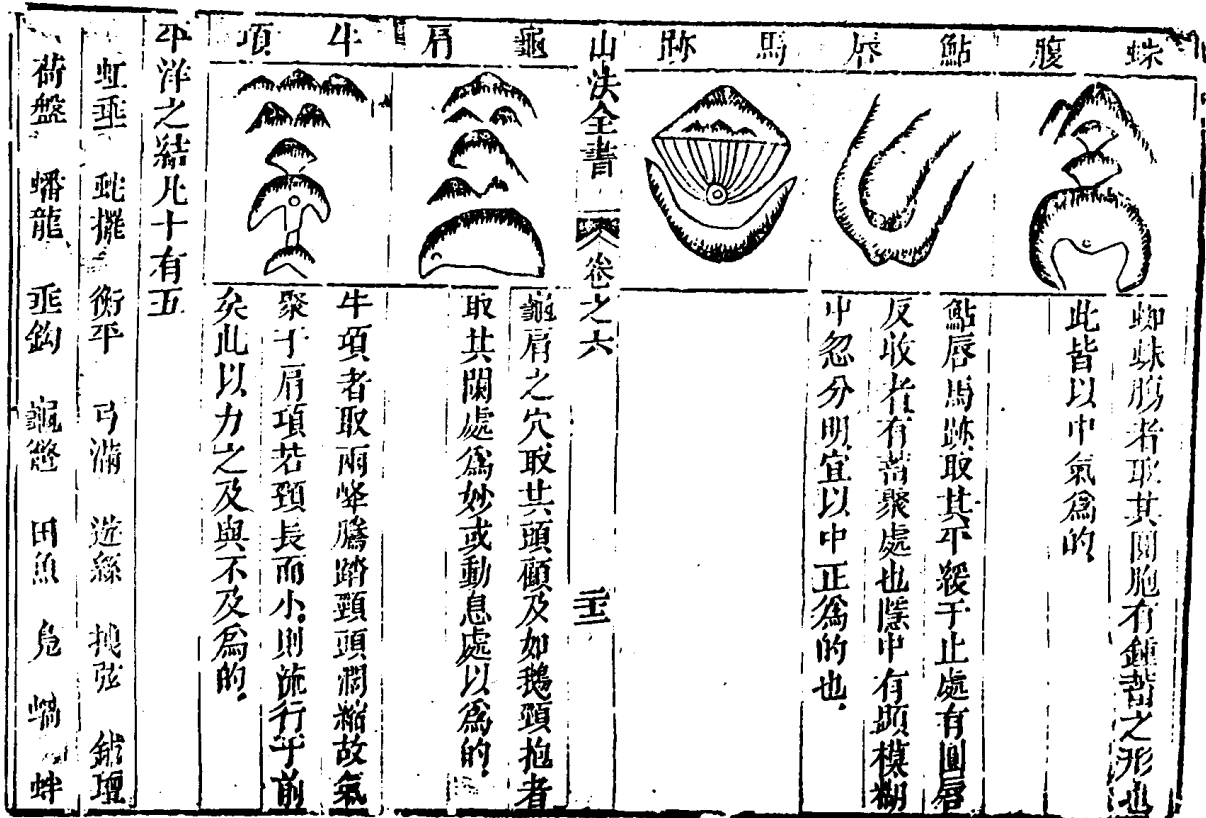 蛛腹
蜘蛛腸者取其圓胞有鍾蓄之形也
此皆以中氣為的
鮎唇
馬跡
鮎唇馬跡取其平緩于止處有圓唇
反收者有蓄聚處也隱中有顕模糊
中忽分明宜以中正為的也
山法全書
卷之六
龜肩
龜肩之穴取其頭顧及如鵝頸抱者
取其闊處為妙或動息處以為的
牛項
牛項者取兩峰騰踏頸頭濶縮故氣
聚于肩項若頸長而小則流行乎前
矣此以力之及與不及為的
平洋之結凡十有五
虹垂 蛇擺 衡平 弓滿 遊絲 弦
荷盤 蟠龍 垂鈎 龜 田魚 蚌